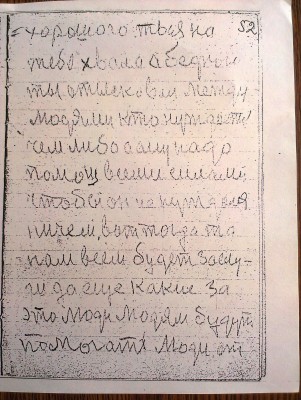 52
=хорошого тья на
тебя хвала а бедного
ты отискови между
людями кто нуждает
чем либо ему надо
помощ всеми силами
чтобы он не нуждался
ничем вот тогда та
нам всем будет заслу-
га да еще какие за
это люди людям будут
помогать люди от